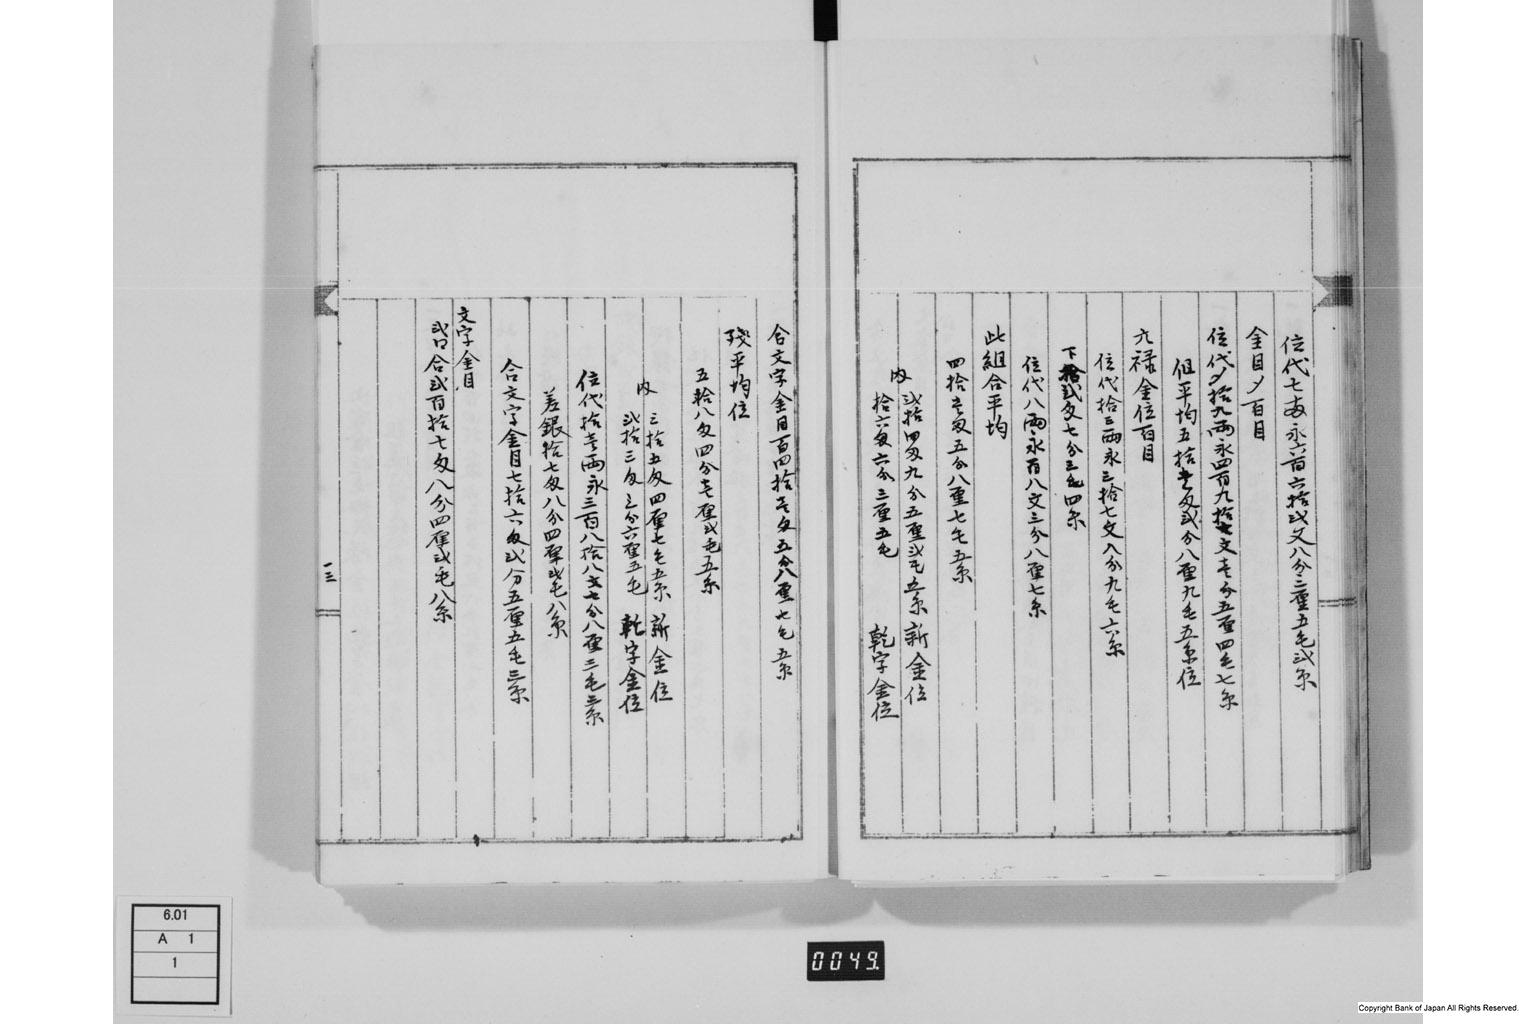 位代七両永六百六拾弐文八分二厘五毛弐糸
金目〆百目
位代〆拾九両永四百九拾七文七分五厘四毛七糸
但平均五拾壱匁弐分八厘九毛五糸位
六禄金位百目
位代拾三両永三拾七文八分九毛六糸
下拾弐匁七分三毛四糸
位代八両永百八文三分八厘七糸
此組合平均
四拾壱匁五分八厘七毛五糸
内 弐拾四匁九分五厘弐毛五糸 新金位
拾六匁六分三厘五毛 乾字金位
合文字金目百四拾壱匁五分八厘七毛五糸
残平均位
五拾八匁四分壱厘弐毛五糸
内 三拾五匁四厘七毛五糸 新金位
弐拾三匁三分六厘五毛 乾字金位
位代拾壱両永三百八拾八文七分八厘三毛三糸
差銀拾七匁八分四厘弐毛八糸
合文字金目七拾六匁弐分五厘五毛三糸
文字金目
弐口合弐百拾七匁八分四厘弐毛八糸
一三
6.01
A 1
1
0049.
Copyright Bank of Japan All Rights Reserved.